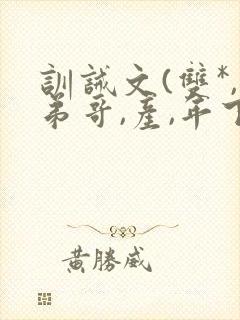 訓誡文(雙*,
弟哥,產,年下
黃勝威